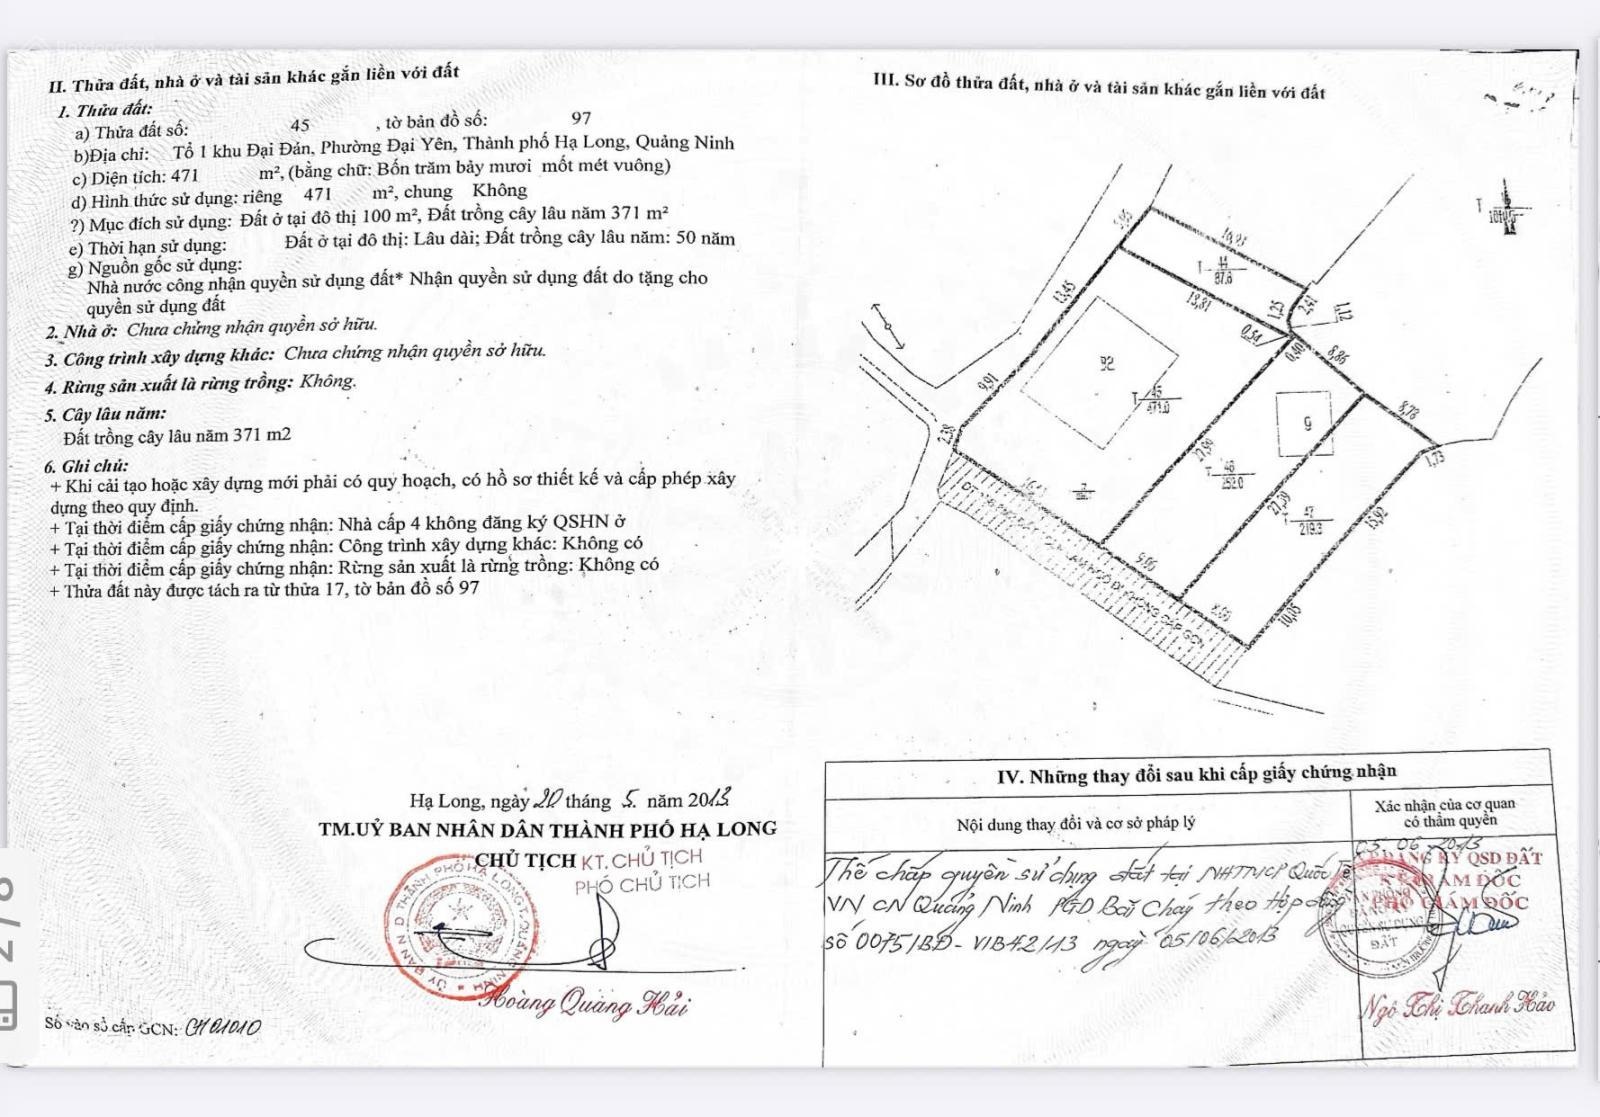 II. Thửa đất, nhà ở và tài sản khác gắn liền với đất
1. Thửa đất:
a) Thửa đất số: 45 , tờ bản đồ số: 97
b)Địa chỉ: Tổ 1 khu Đại Đán, Phường Đại Yên, Thành phố Hạ Long, Quảng Ninh
c) Diện tích: 471 m², (bằng chữ: Bốn trăm bảy mươi mốt mét vuông)
d) Hình thức sử dụng: riêng 471 m², chung Không
?) Mục đích sử dụng: Đất ở tại đô thị 100 m², Đất trồng cây lâu năm 371 m²
e) Thời hạn sử dụng: Đất ở tại đô thị: Lâu dài; Đất trồng cây lâu năm: 50 năm
g) Nguồn gốc sử dụng:
Nhà nước công nhận quyền sử dụng đất* Nhận quyền sử dụng đất do tặng cho
quyền sử dụng đất
2. Nhà ở: Chưa chứng nhận quyền sở hữu.
3. Công trình xây dựng khác: Chưa chứng nhận quyền sở hữu.
4. Rừng sản xuất là rừng trồng: Không.
5. Cây lâu năm:
Đất trồng cây lâu năm 371 m2
6. Ghi chú:
+ Khi cải tạo hoặc xây dựng mới phải có quy hoạch, có hồ sơ thiết kế và cấp phép xây
dựng theo quy định.
+ Tại thời điểm cấp giấy chứng nhận: Nhà cấp 4 không đăng ký QSHN ở
+ Tại thời điểm cấp giấy chứng nhận: Công trình xây dựng khác: Không có
+ Tại thời điểm cấp giấy chứng nhận: Rừng sản xuất là rừng trồng: Không có
+ Thửa đất này được tách ra từ thửa 17, tờ bản đồ số 97
Hạ Long, ngày 20 tháng 5. năm 2013
TM.UỶ BAN NHÂN DÂN THÀNH PHỐ HẠ LONG
CHỦ TỊCH KT. CHỦ TỊCH
PHÓ CHỦ TỊCH
Hoàng Quang Hải
Số vào sổ cấp GCN: CH01010
III. Sơ đồ thửa đất, nhà ở và tài sản khác gắn liền với đất
5,95
16,93
T 44
87.8
13,45
13,81
1,25
2,61
1,12
0,54
0,40
8,86
9,91
92
T 45
471.0
9
8,78
2,38
27,99
1,73
T 46
252.0
27,39
T 47
219.3
15,92
9,00
10,05
IV. Những thay đổi sau khi cấp giấy chứng nhận
Nội dung thay đổi và cơ sở pháp lý
Xác nhận của cơ quan
có thẩm quyền
Thế chấp quyền sử dụng đất tại NHTMCP Quốc Tế
VN CN Quảng Ninh PGD Bãi Cháy theo Hợp đồng
số 0075/BĐ-VIB42/13 ngày 05/06/2013
05.06.2013
VP ĐĂNG KÝ QSD ĐẤT
KT. GIÁM ĐỐC
PHÓ GIÁM ĐỐC
Ngô Thị Thanh Hảo